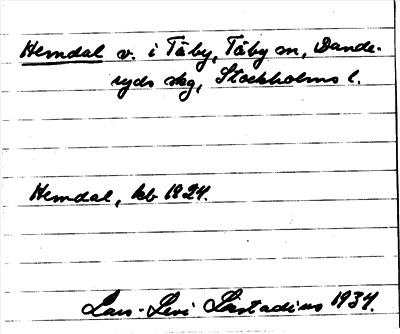 Hemdal v. i Täby, Täby sn, Dande-
ryds skg, Stockholms l.
Hemdal, kb 1824.
Lars-Levi Læstadius 1934.